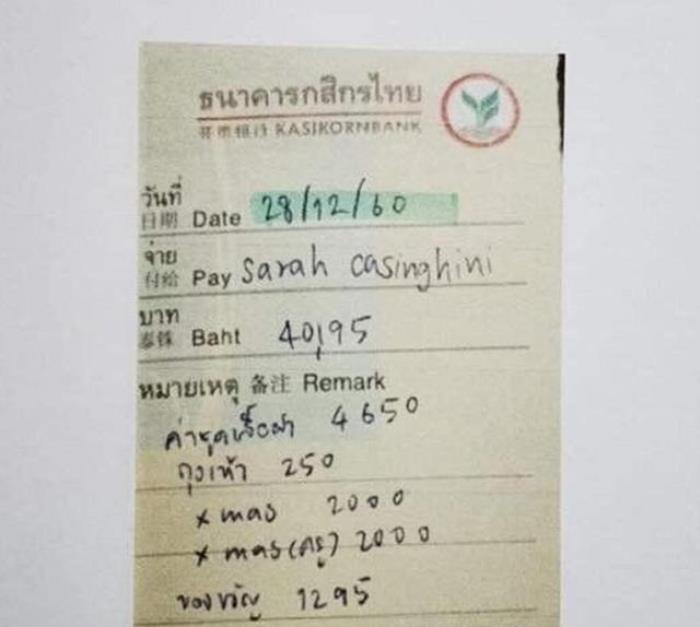 ธนาคารกสิกรไทย
KASIKORNBANK
วันที่
日期 Date 28/12/60
จ่าย
付給 Pay Sarah casinghini
บาท
泰銖 Baht 40,195
หมายเหตุ 备注 Remark
ค่าชุดเสื้อผ้า 4650
ถุงเท้า 250
x mas 2000
x mas (ครู) 2000
ของขวัญ 1295